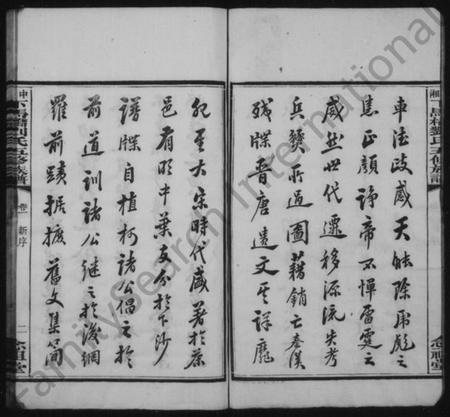 車法政咸天能除虎彪之
焦正顏諍帝不憚雷霆之
威然世代遷移源流失考
兵燹所過圖籍銷亡秦漢
殘牒晉唐遺文其詳靡
紀至大宋時代盛著於茶
邑有明中葉支分於下沙
譜牒自植柯諸公倡之於
前道訓諸公繼之於後網
羅前蹟摭摭舊文集簡
卷二 新序
二
FamilySearch International